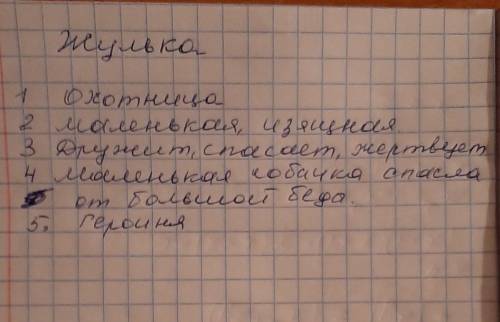 Жулька
1 Охотница
2 маленькая, изящная
3 Дружит, спасает, жертвует
4 Маленькая собачка спасла
от большой беда.
5. Героиня